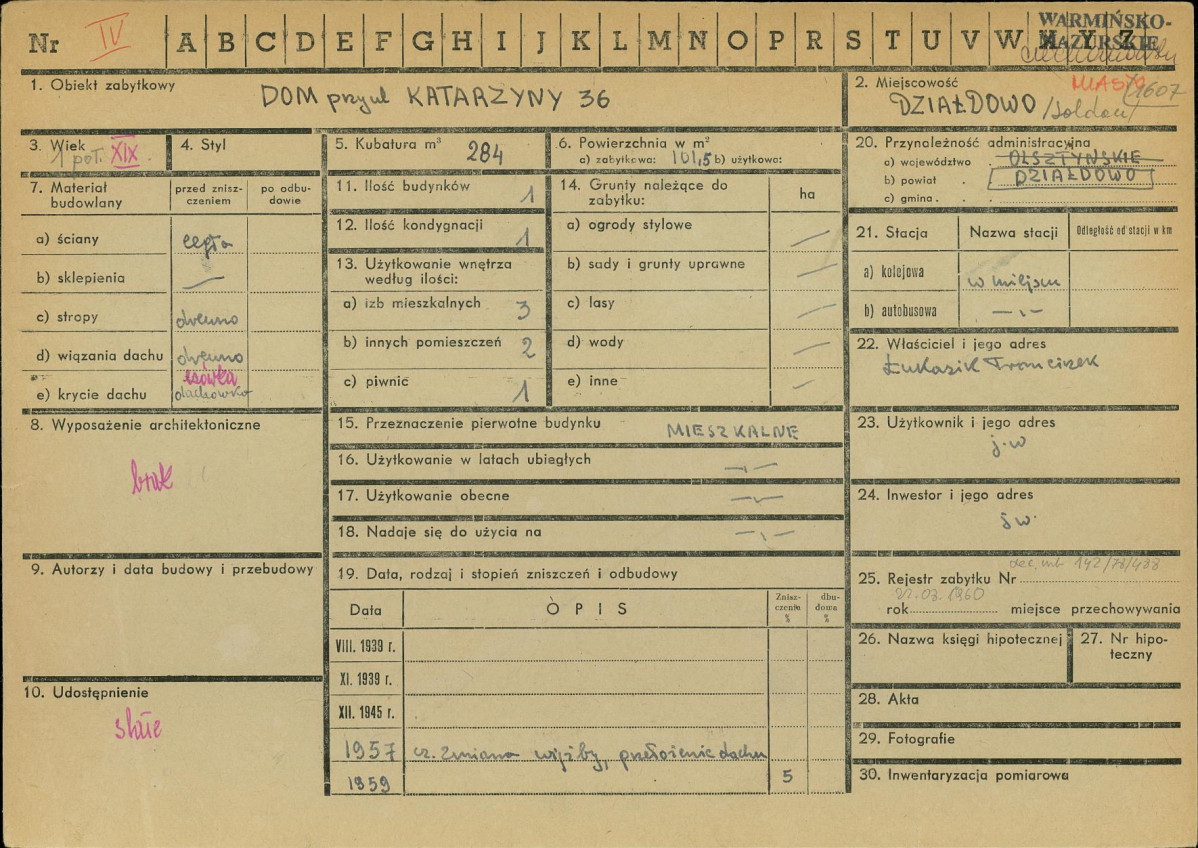 Nr IV A B C D E F G H I J K L M N O P R S T U V W X Y Z
WARMIŃSKO-
MAZURSKIE
1. Obiekt zabytkowy
DOM przy ul KATARZYNY 36
2. Miejscowość MIASTO 1607
DZIAŁDOWO /Soldau/
3. Wiek
1 poł. XIX.
4. Styl
5. Kubatura m³ 284
6. Powierzchnia w m²
a) zabytkowa: 101,5 b) użytkowa:
20. Przynoleżność administracyjna
a) województwo . OLSZTYŃSKIE
b) powiat . DZIAŁDOWO
c) gmina . .
7. Materiał
budowlany
przed znisz-
czeniem
po odbu-
dowie
a) ściany cegła
b) sklepienia —
c) stropy drewno
d) wiązania dachu drewno
esówka
e) krycie dachu dachówka
11. Ilość budynków 1
12. Ilość kondygnacji 1
13. Użytkowanie wnętrza
według ilości:
a) izb mieszkalnych 3
b) innych pomieszczeń 2
c) piwnic 1
14. Grunty należące do
zabytku:
ha
a) ogrody stylowe —
b) sady i grunty uprawne —
c) lasy —
d) wody —
e) inne —
21. Stacja
Nazwa stacji
Odległość od stacji w km
a) kolejowa w miejscu
b) autobusowa —,,—
22. Właściciel i jego adres
Łukasik Franciszek
8. Wyposażenie architektoniczne
brak
15. Przeznaczenie pierwotne budynku MIESZKALNE
16. Użytkowanie w latach ubiegłych —,,—
17. Użytkowanie obecne —,,—
18. Nadaje się do użycia na —,,—
23. Użytkownik i jego adres
j.w
24. Inwestor i jego adres
j.w.
9. Autorzy i data budowy i przebudowy
10. Udostępnienie
stałe
19. Data, rodzaj i stopień zniszczeń i odbudowy
Data
OPIS
Znisz-
czenia
%
dbu-
dowa
%
VIII. 1939 r.
XI. 1939 r.
XII. 1945 r.
1957 cz. zmiana więźby, przełożenie dachu
1959 5
25. Rejestr zabytku Nr
rok 03.1960 miejsce przechowywania
26. Nazwa księgi hipotecznej
27. Nr hipo-
teczny
28. Akta
29. Fotografie
30. Inwentaryzacja pomiarowa